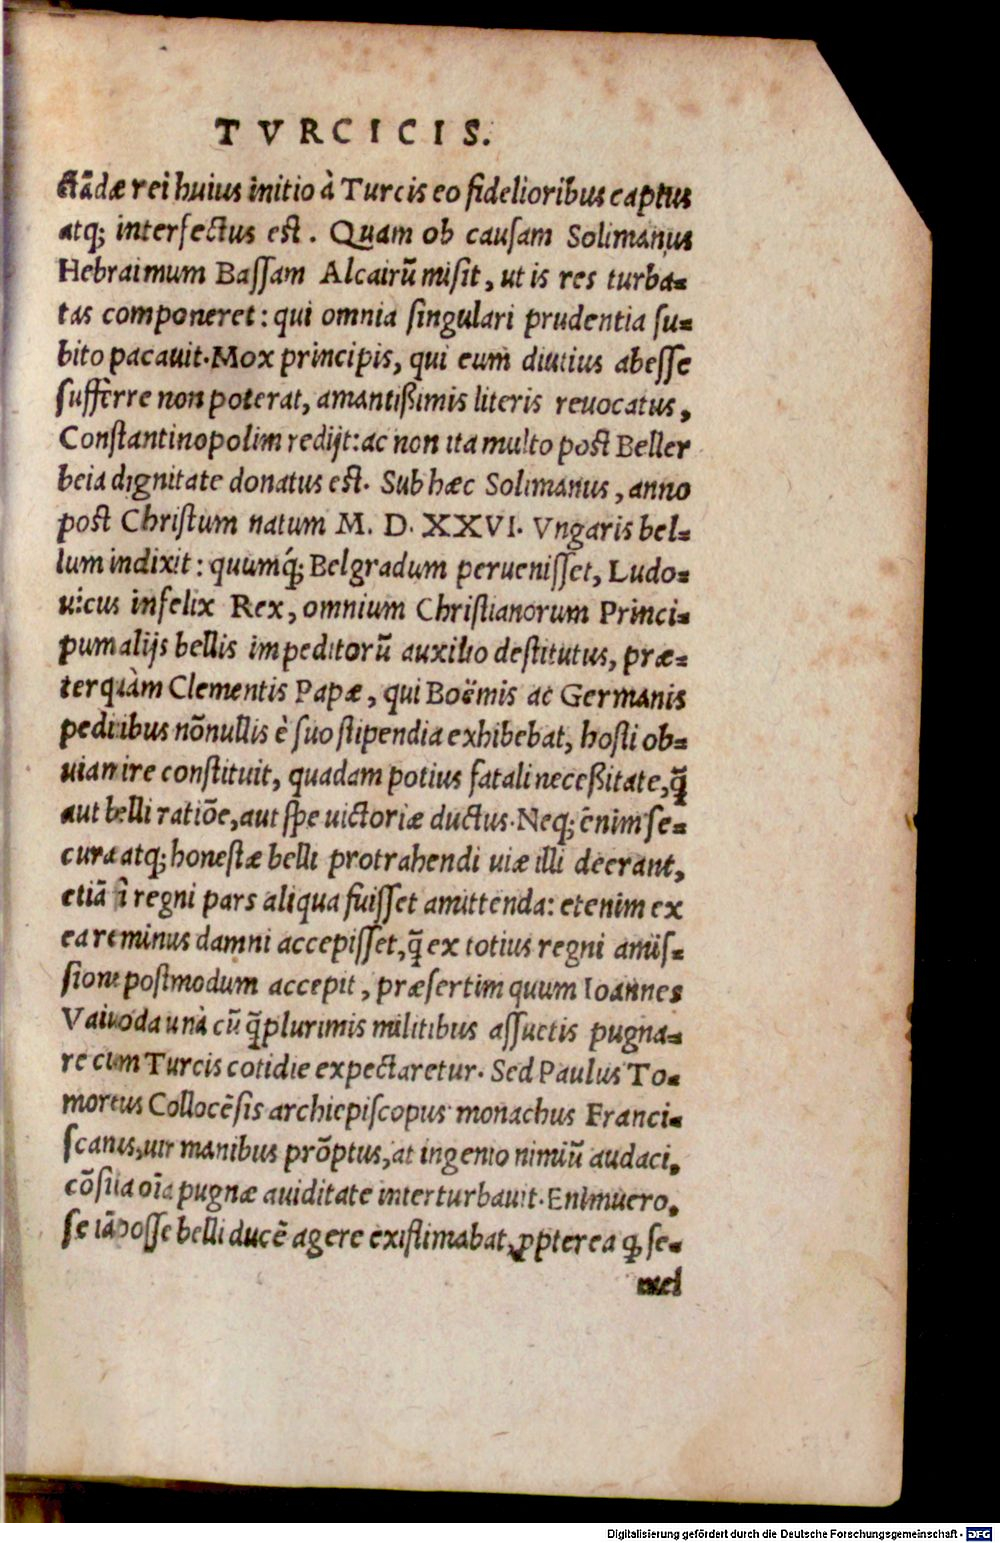 TVRCICIS.
dæ rei huius initio à Turcis eo fidelioribus captus
atq; interfectus est. Quam ob causam Solimanus
Hebraimum Bassam Alcairū misit, ut is res turba-
tas componeret: qui omnia singulari prudentia su-
bito pacauit. Mox principis, qui eum diutius abesse
sufferre non poterat, amantißimis literis reuocatus,
Constantinopolim redijt: ac non ita multo post Beller
beia dignitate donatus est. Sub hæc Solimanus, anno
post Christum natum M. D. XXVI. Vngaris bel-
lum indixit: quumq́; Belgradum peruenisset, Ludo-
uicus infelix Rex, omnium Christianorum Princi-
pum alijs bellis impeditorū auxilio destitutus, præ-
terquàm Clementis Papæ, qui Boëmis ac Germanis
peditibus nōnullis è suo stipendia exhibebat, hosti ob-
uiam ire constituit, quadam potius fatali neceßitate, q̄
aut belli ratiōe, aut spe uictoriæ ductus. Neq; enim se-
cura atq; honestæ belli protrahendi uiæ illi deerant,
etiā si regni pars aliqua fuisset amittenda: etenim ex
ea re minus damni accepisset, q̄ ex totius regni amis-
sione postmodum accepit, præsertim quum Ioannes
Vaiuoda unà cū q̄plurimis militibus assuetis pugna-
re cum Turcis cotidie expectaretur. Sed Paulus To-
moreus Collocēsis archiepiscopus monachus Franci-
scanus, uir manibus prōptus, at ingenio nimiū audaci,
cōsilia oīa pugnæ auiditate interturbauit. Enimuero,
se iā posse belli ducē agere existimabat, ꝓpterea ꝙ se-
mel
Digitalisierung gefördert durch die Deutsche Forschungsgemeinschaft - DFG